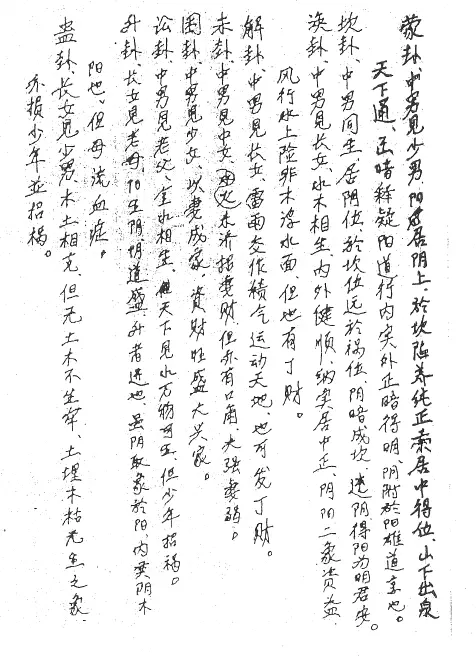 蒙卦、中男見少男、阳居阴上、於坎陷养纯正、索居中得位、山下出泉
天下通、正暗释疑阳道行内实外正暗得明、阴附於阳雄道亨也。
坎卦、中男同生居阴位、於坎位远於祸位、阴暗成坎、逢阴得阳为明君安。
涣卦、中男見長女、水木相生、内外健順、纳实居中正、阴阳二象资益
风行水上险非木浮水面、但也有丁财。
解卦、中男見長女、雷雨交作積气运动天地、也可发丁财。
未卦、中男見中女、水火未济损妻财、但亦有口角、夫强妻弱。
困卦、中男見少女、以妻成家、資财旺盛大兴家。
讼卦、中男見老父、金水相生、但天下見水万物可生、但少年招祸。
升卦、長女見老母、阳生阴明道盛、升者進也、虽阴取象於阳、内实阴木
阳也、但母流血症。
蛊卦、長女見少男、木土相克、但无土木不生牢、土埋木枯无生之象、
亦损少年並招祸。